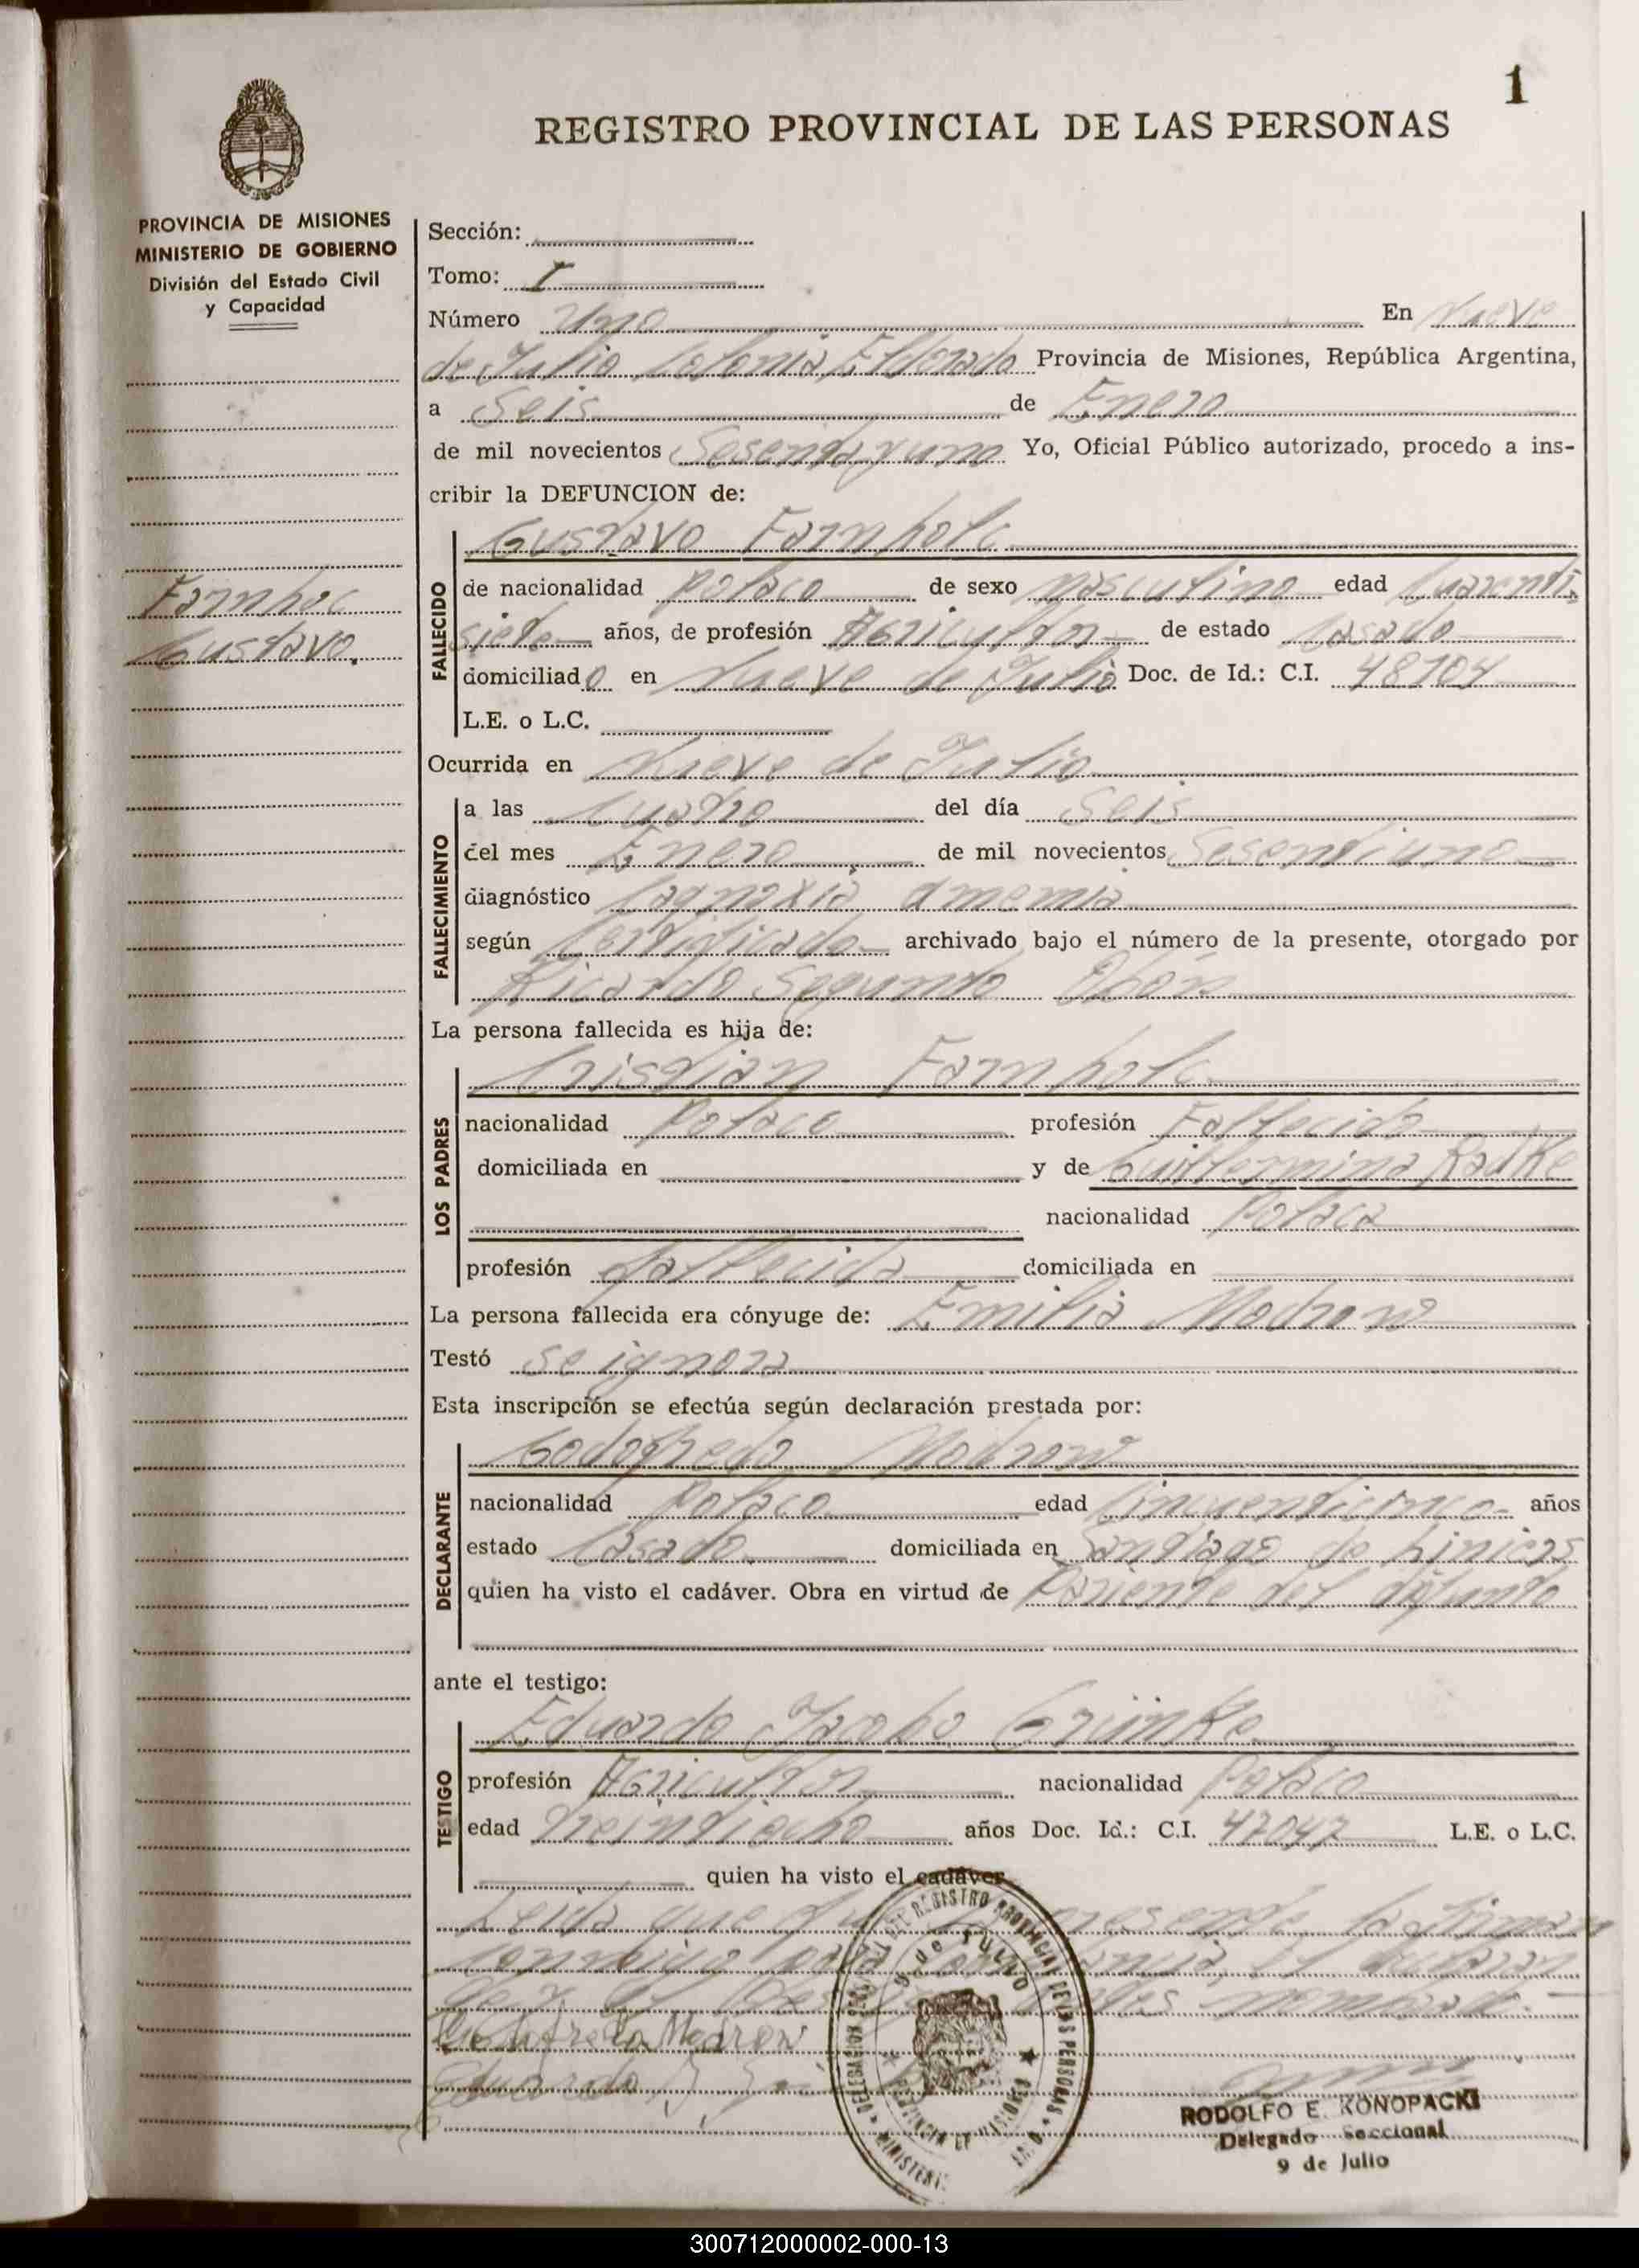 1
REGISTRO PROVINCIAL DE LAS PERSONAS
PROVINCIA DE MISIONES
MINISTERIO DE GOBIERNO
División del Estado Civil
y Capacidad
Farnhoc
Gustavo.
Sección:
Tomo: I
Número Uno En Nueve
de Julio Colonia Eldorado Provincia de Misiones, República Argentina,
a Seis de Enero
de mil novecientos Sesenta y uno Yo, Oficial Público autorizado, procedo a ins-
cribir la DEFUNCION de:
Gustavo Farnholc
FALLECIDO
de nacionalidad Polaco de sexo masculino edad Cuarenti
siete años, de profesión Agricultor de estado Casado
domiciliado en Nueve de Julio Doc. de Id.: C.I. 48104
L.E. o L.C.
Ocurrida en Nueve de Julio
FALLECIMIENTO
a las Cuatro del día Seis
del mes Enero de mil novecientos Sesentiuno
diagnóstico anemia
según Certificado archivado bajo el número de la presente, otorgado por
Ricardo Segundo
La persona fallecida es hija de:
LOS PADRES
Cristian Farnholc
nacionalidad Polaco profesión Fallecido
domiciliada en y de Guillermina Radke
nacionalidad Polaca
profesión fallecida domiciliada en
La persona fallecida era cónyuge de: Emilia Modrow
Testó se ignora
Esta inscripción se efectúa según declaración prestada por:
DECLARANTE
Godofredo Modrow
nacionalidad Polaco edad Cincuenticinco años
estado Casado domiciliada en Santiago de Liniers
quien ha visto el cadáver. Obra en virtud de Pariente del difunto
ante el testigo:
TESTIGO
Eduardo Jacobo Grünke
profesión Agricultor nacionalidad Polaco
edad Treintiocho años Doc. Id.: C.I. 47047 L.E. o L.C.
quien ha visto el cadáver
Leida que presente la firman
conmigo
Modrow
Eduardo J.
REGISTRO PROVINCIAL DE LAS PERSONAS
9 de JULIO
RODOLFO E. KONOPACKI
Delegado Seccional
9 de Julio
300712000002-000-13